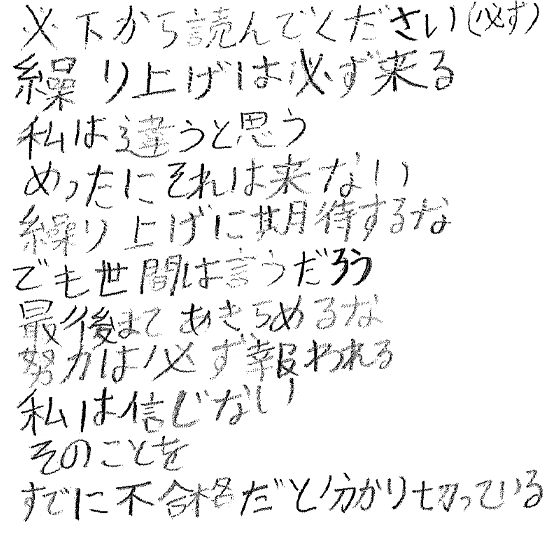 必ず下から読んでください(必ず)
繰り上げは必ず来る
私は違うと思う
めったにそれは来ない
繰り上げに期待するな
でも世間は言うだろう
最後まであきらめるな
努力は必ず報われる
私は信じない
そのことを
すでに不合格だと分かり切っている